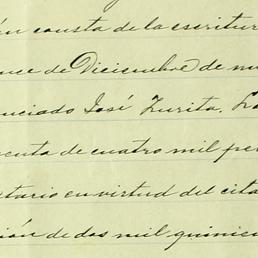 ún consta de la escritur
nce de Diciembre de mi
nciado José Zurita. La
enta de cuatro mil pes
etario en virtud del cita
ión de dos mil quinien